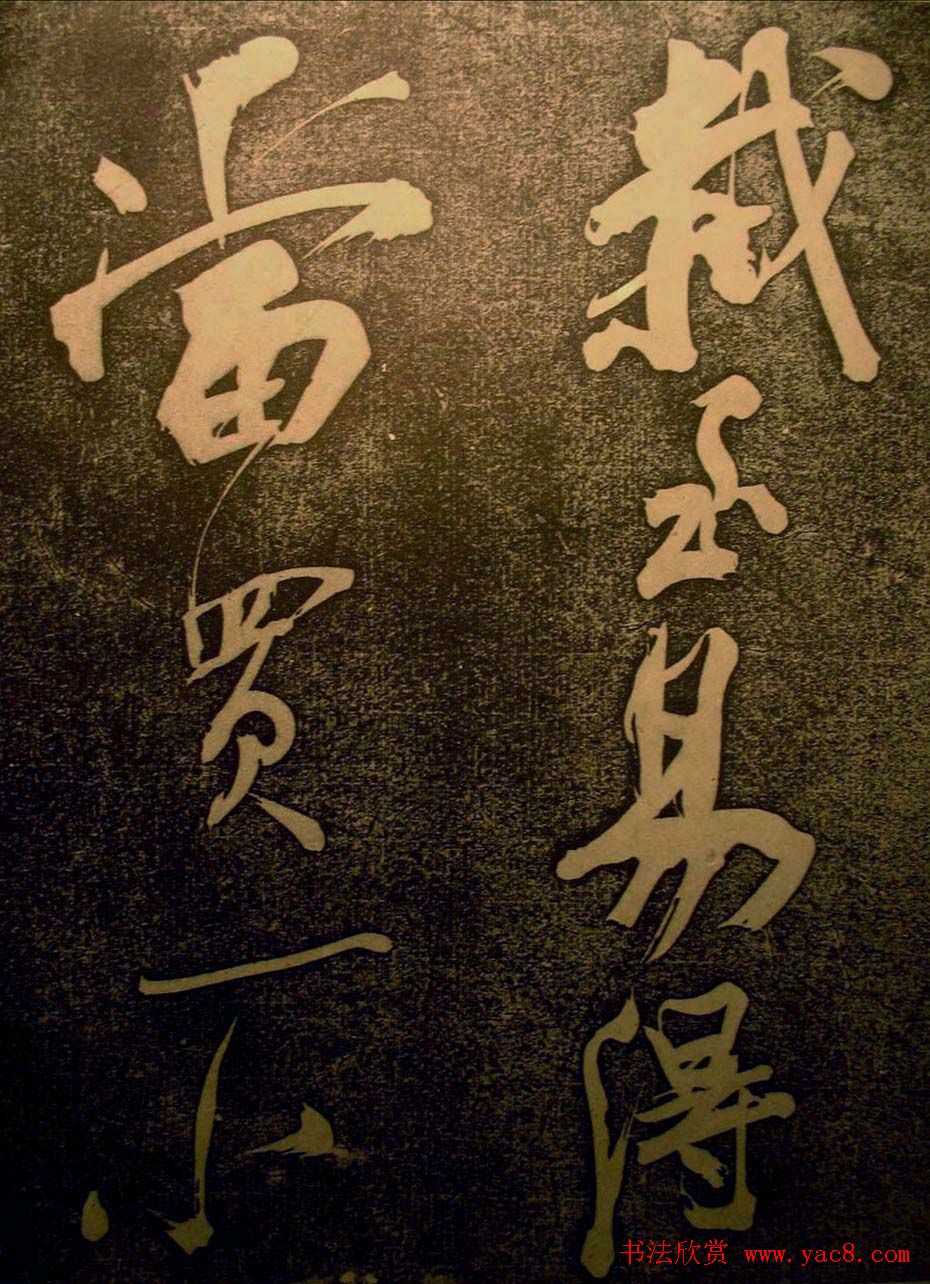 栽至易得
當買一小
书法欣赏 www.yac8.com